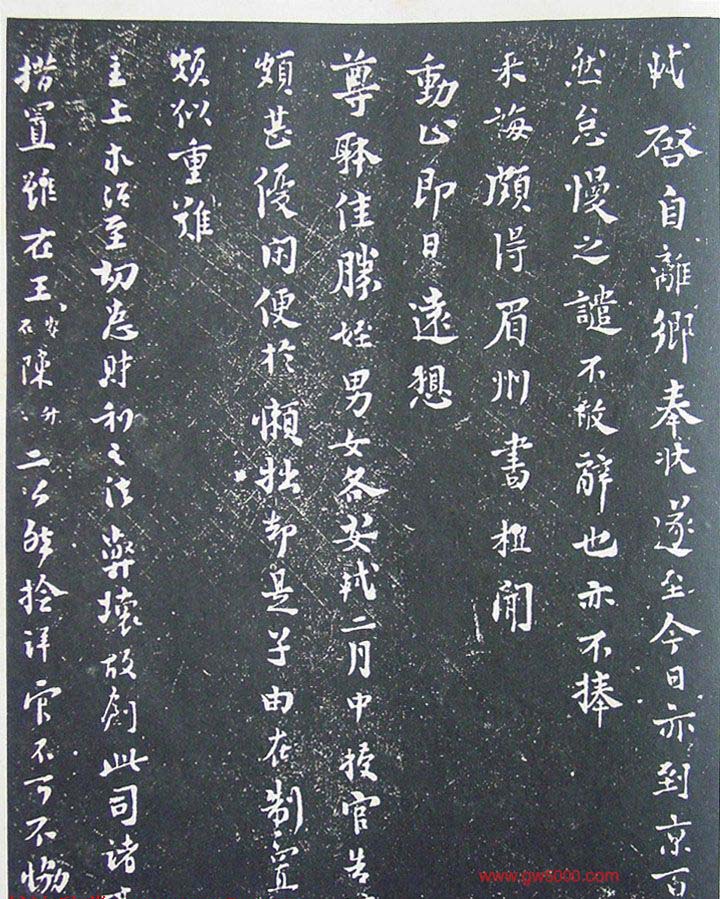 軾啓自離鄉奉狀遂至今日亦到京百
然怠慢之譴不敢辭也亦不捧
來誨頗得眉州書粗聞
動止即日遠想
尊眎佳勝姪男女各安軾二月中授官告
頗甚優閑便於懶拙却是子由在制置
頗似重難
主上求治至切患財利之法弊壞故創此司諸
措置雖在王安石陳升二公然檢詳官不可不協
www.gw5000.com